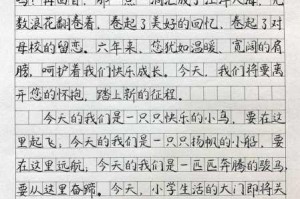 数浪花翻卷着，卷起了美好的回忆，卷起了对
母校的留恋。六年来，您犹如温暖、宽阔的肩
膀，呵护着我们快乐成长。今天，我们将要离
开您的怀抱，踏上新的征程。
今天的我们是一只只快乐的小鸟，要在这
里起飞；今天的我们是一只只扬帆的小船，要
在这里远航；今天的我们是一匹匹奔腾的骏马，
要从这里奋蹄。今天，小学生活的大门即将关